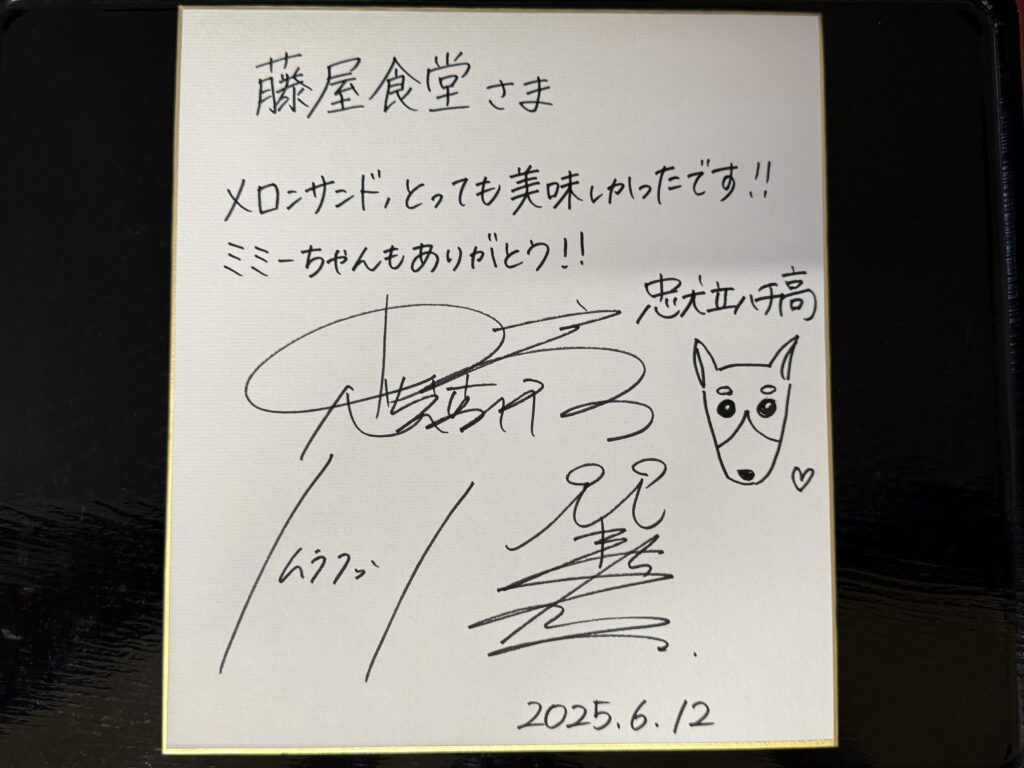 藤屋食堂さま
メロンサンド、とっても美味しかったです!!
ミミーちゃんもありがとう!!
忠犬立ハチ高
2025.6.12